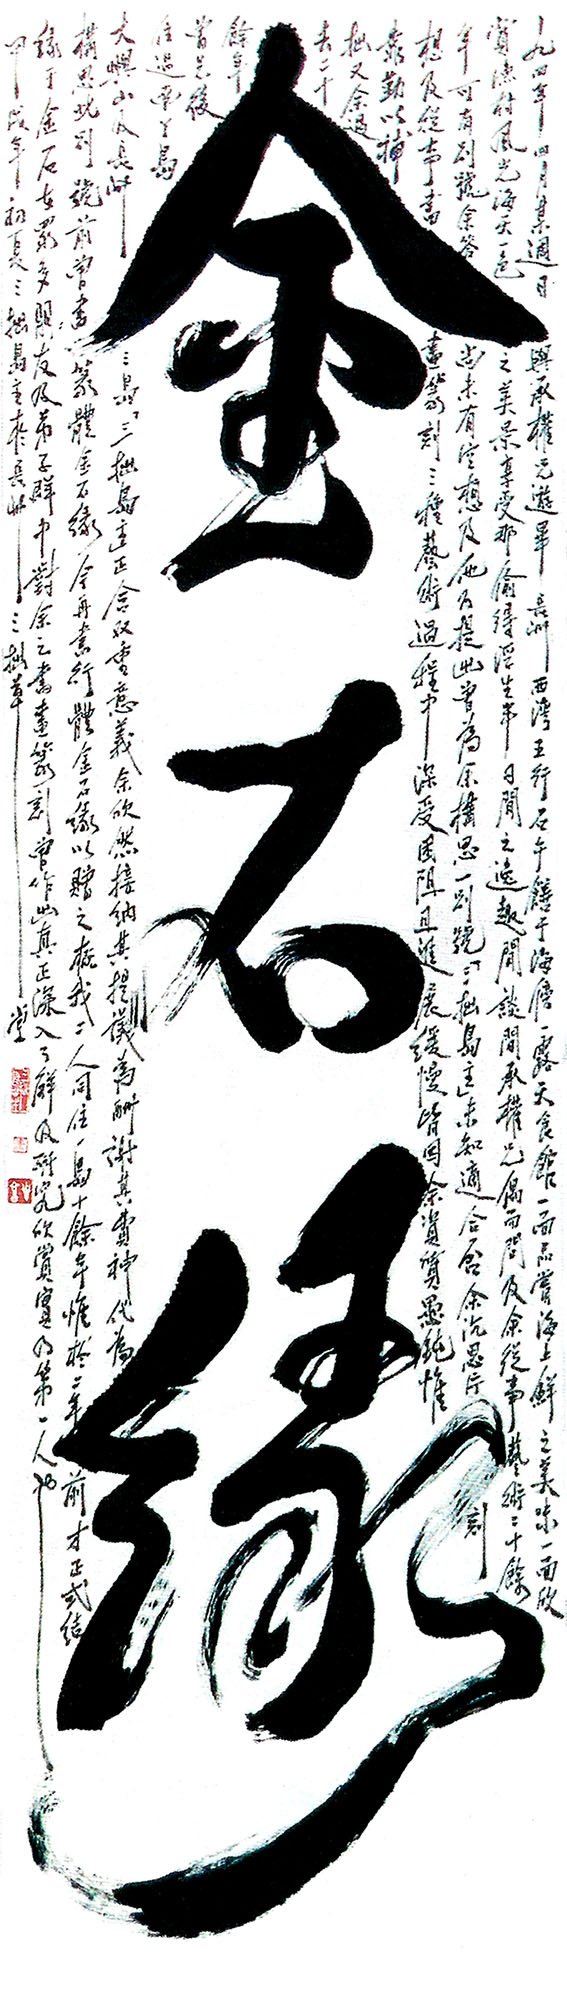 金石緣
一九九四年四月某週日與承權兄遊畢長洲西灣五行石午饍于海傍一露天食館一面品嘗海上鮮之美味一面欣
賞漁村風光海天一色之美景享受那偷得浮生半日閒之逸趣閒談間承權兄偶而問及余從事藝術二十餘
年可有別號余答尚未有空想及他乃提此曾為余構思一別號三拙島主未知適合否余沉思片刻
想及從事書畫篆刻三種藝術過程中深受困阻且進展緩慢皆因余資質愚鈍惟
靠勤以補
拙又余過
去二十
餘年
曾先後
住過
大嶼山及長洲三島三拙島主正合双重意義余欣然接納其提議為酬謝其費神代為
構思此別號前曾書篆體金石緣今再書行體金石緣以贈之概我二人同住一島十餘年惟於二年前才正式結
緣于金石在眾多朋友及弟子群中對余之書畫篆刻曾作出真正深入了解及研究欣賞實乃第一人也
甲戌年初夏三拙島主於長洲三拙草堂